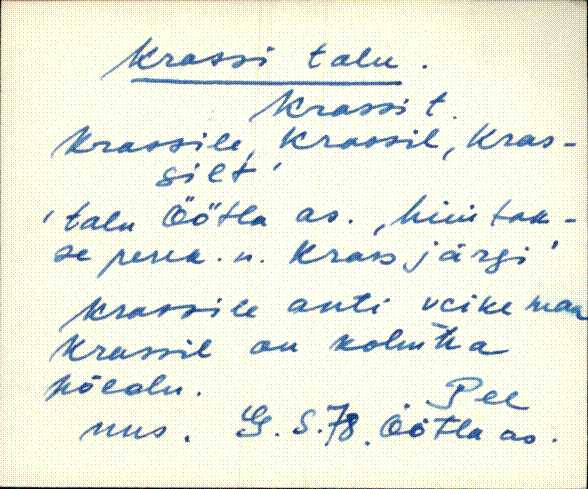 Krassi talu.
Krassit.
Krassile, Krassil, Kras-
silt
'talu Öötla as., hüütak-
se perek. n. Krass järgi'
Krassile anti veike maa
Krassil on kolm
põldu.
Pee
mus. G. S. 78. Öötla as.